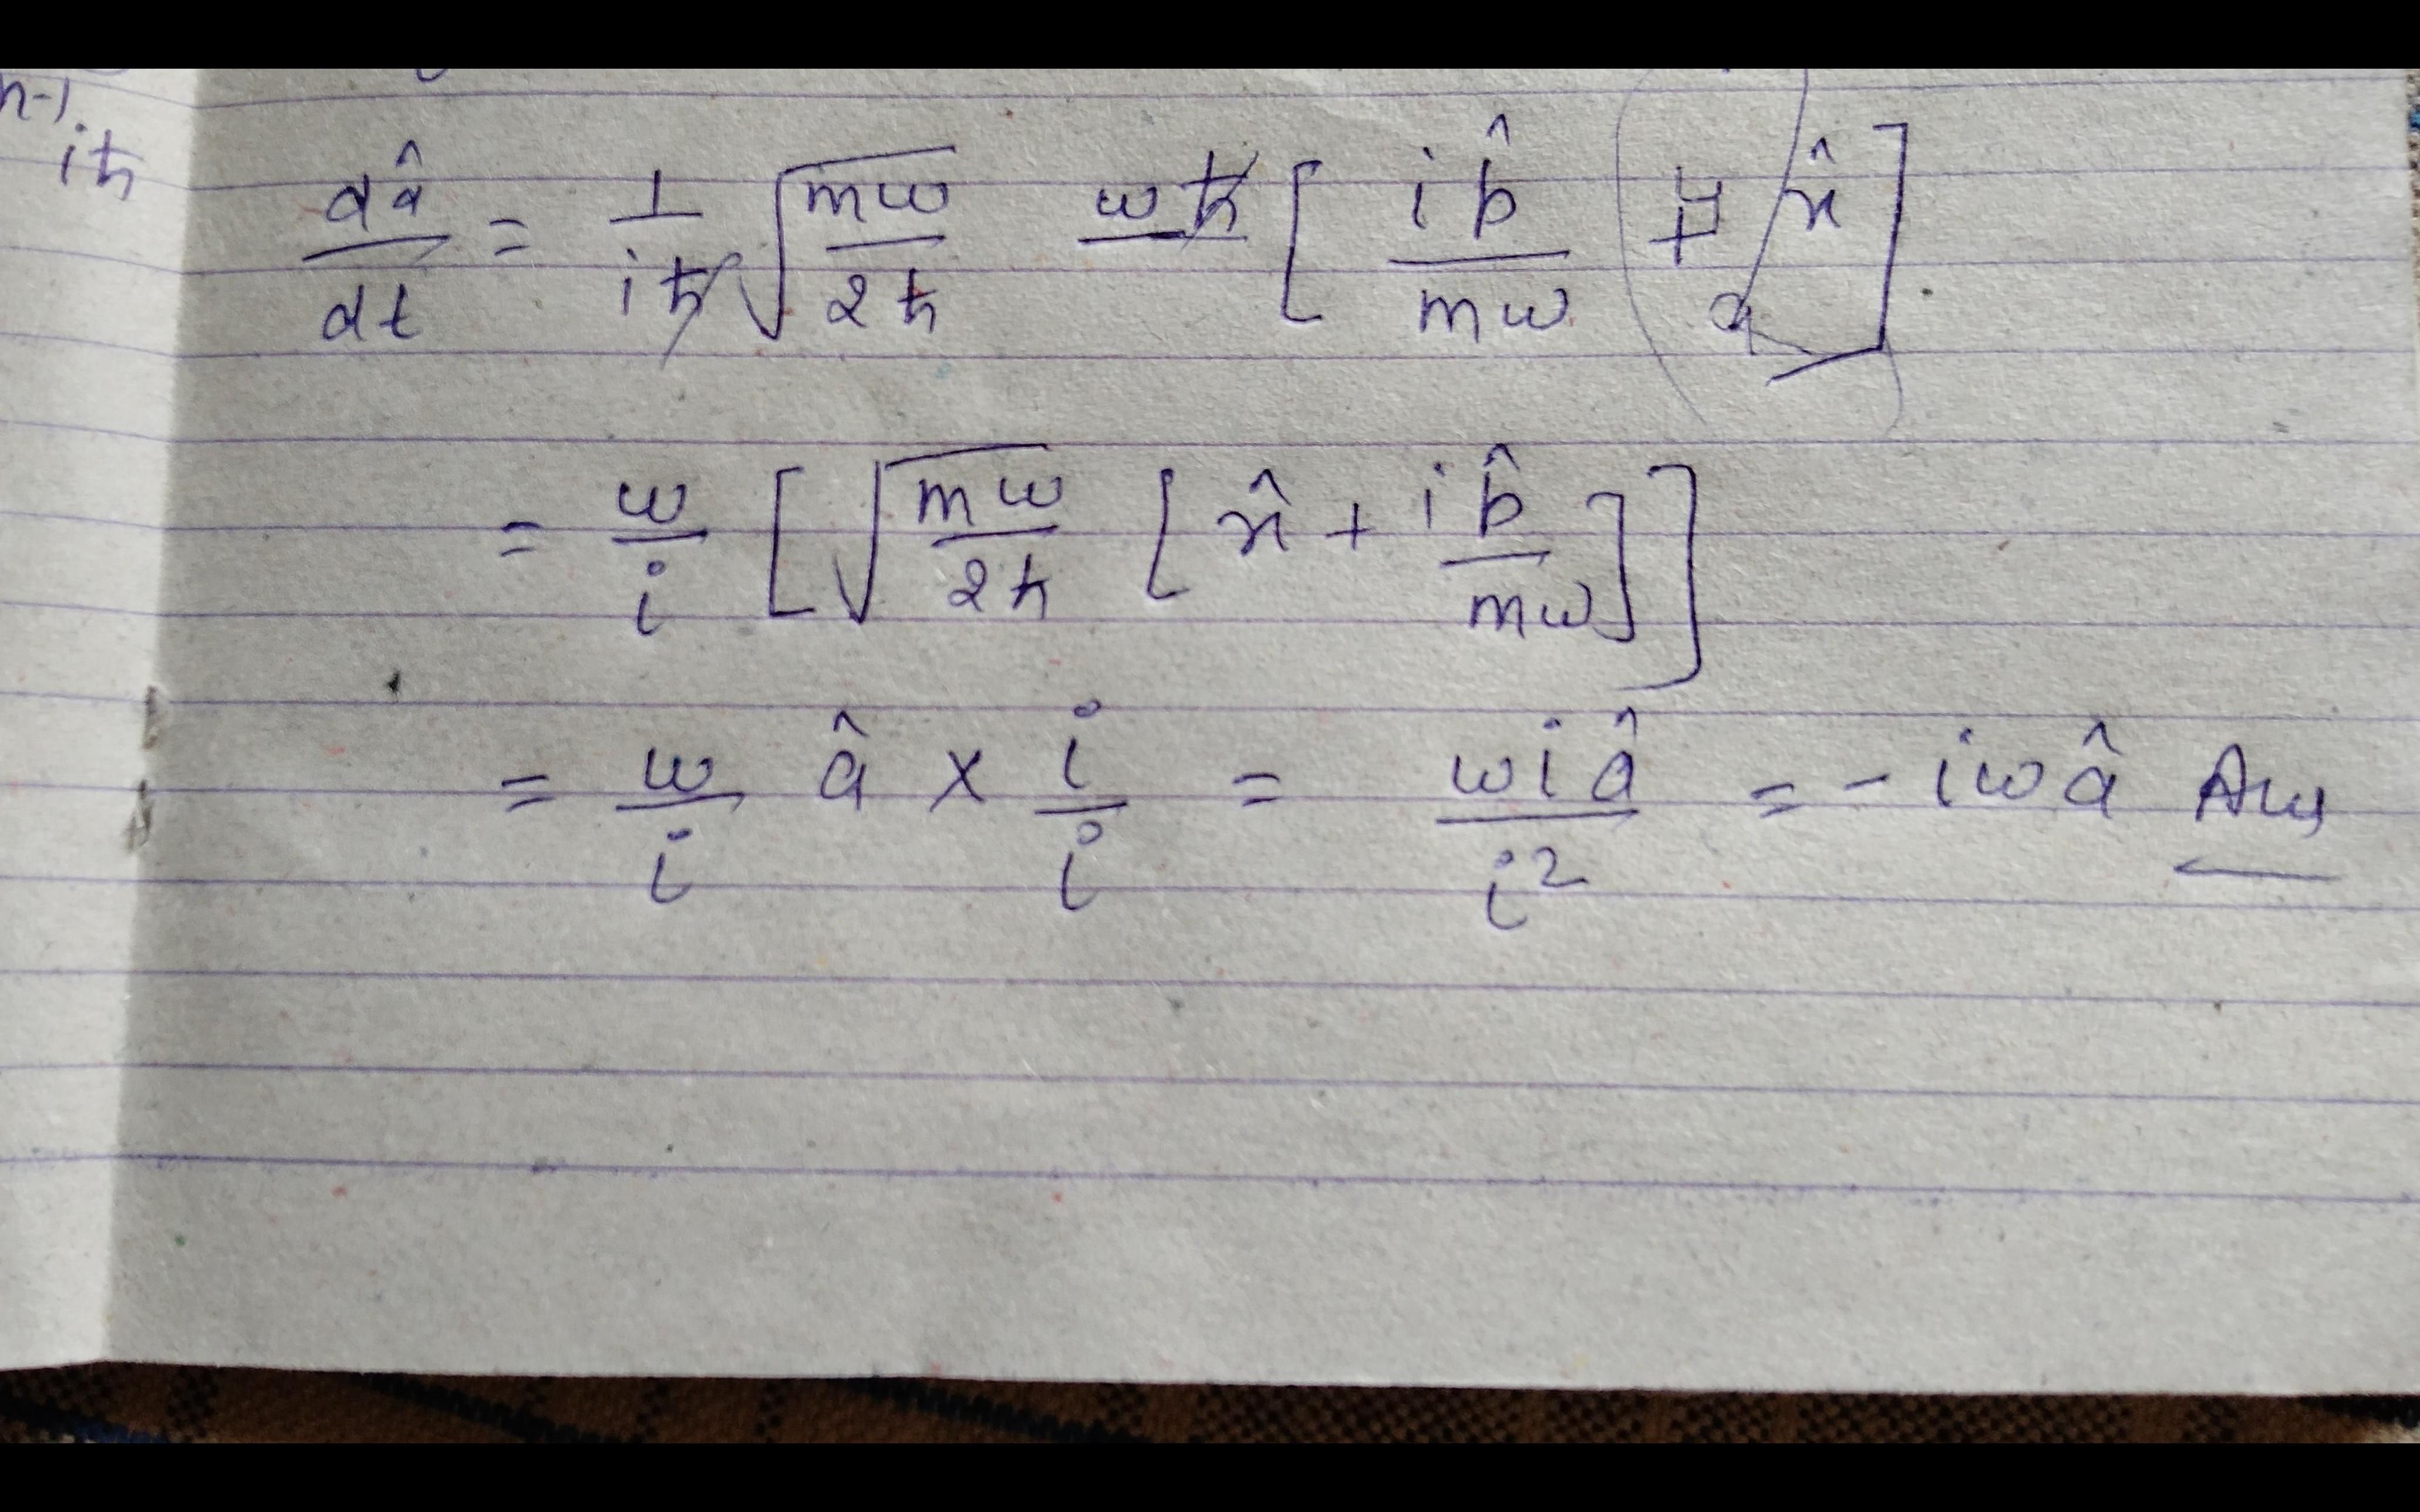 n-1
iħ
dâ/dt = 1/iħ √(mω/2ħ) ωħ [ i p̂/mω + x̂ ]
= ω/i [ √(mω/2ħ) [ x̂ + i p̂/mω ] ]
= ω/i â × i/i = ωiâ/i² = - iωâ Ans